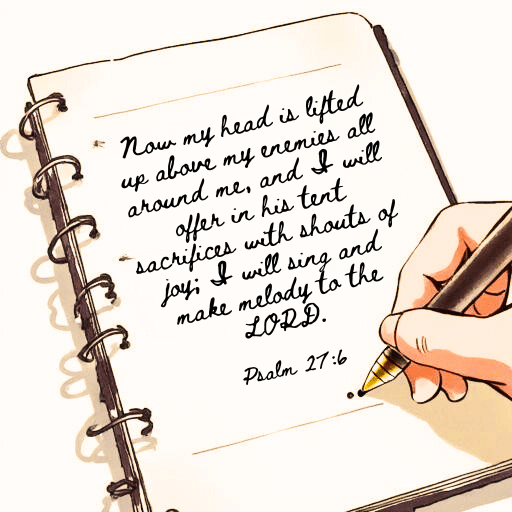 Now my head is lifted
up above my enemies all
around me, and I will
offer in his tent
sacrifices with shouts of
joy; I will sing and
make melody to the
LORD.
Psalm 27:6